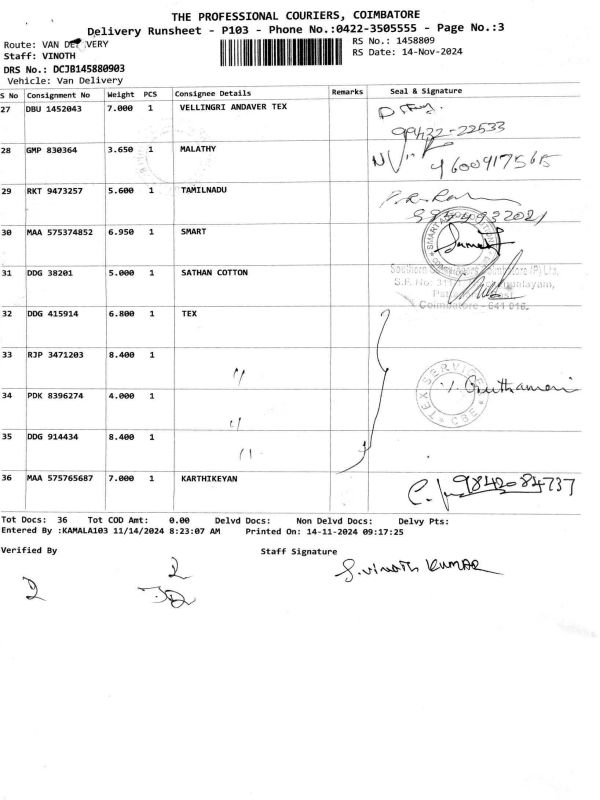 THE PROFESSIONAL COURIERS, COIMBATORE
Delivery Runsheet - P103 - Phone No.:0422-3505555 - Page No.:3
Route: VAN DELIVERY
RS No.: 1458809
Staff: VINOTH
RS Date: 14-Nov-2024
DRS No.: DCJB145880903
Vehicle: Van Delivery
S No Consignment No Weight PCS Consignee Details Remarks Seal & Signature
27 DBU 1452043 7.000 1 VELLINGRI ANDAVER TEX
99432-22533
28 GMP 830364 3.650 1 MALATHY
9600917565
29 RKT 9473257 5.600 1 TAMILNADU
30 MAA 575374852 6.950 1 SMART
31 DDG 38201 5.000 1 SATHAN COTTON
Coimbatore - 641 016.
32 DDG 415914 6.800 1 TEX
33 RJP 3471203 8.400 1 "
TEX SERVICE
CBE
34 PDK 8396274 4.000 1 "
35 DDG 914434 8.400 1 "
36 MAA 575765687 7.000 1 KARTHIKEYAN
9842084737
Tot Docs: 36 Tot COD Amt: 0.00 Delvd Docs: Non Delvd Docs: Delvy Pts:
Entered By :KAMALA103 11/14/2024 8:23:07 AM Printed On: 14-11-2024 09:17:25
Verified By Staff Signature
S. Vinoth KUMAR